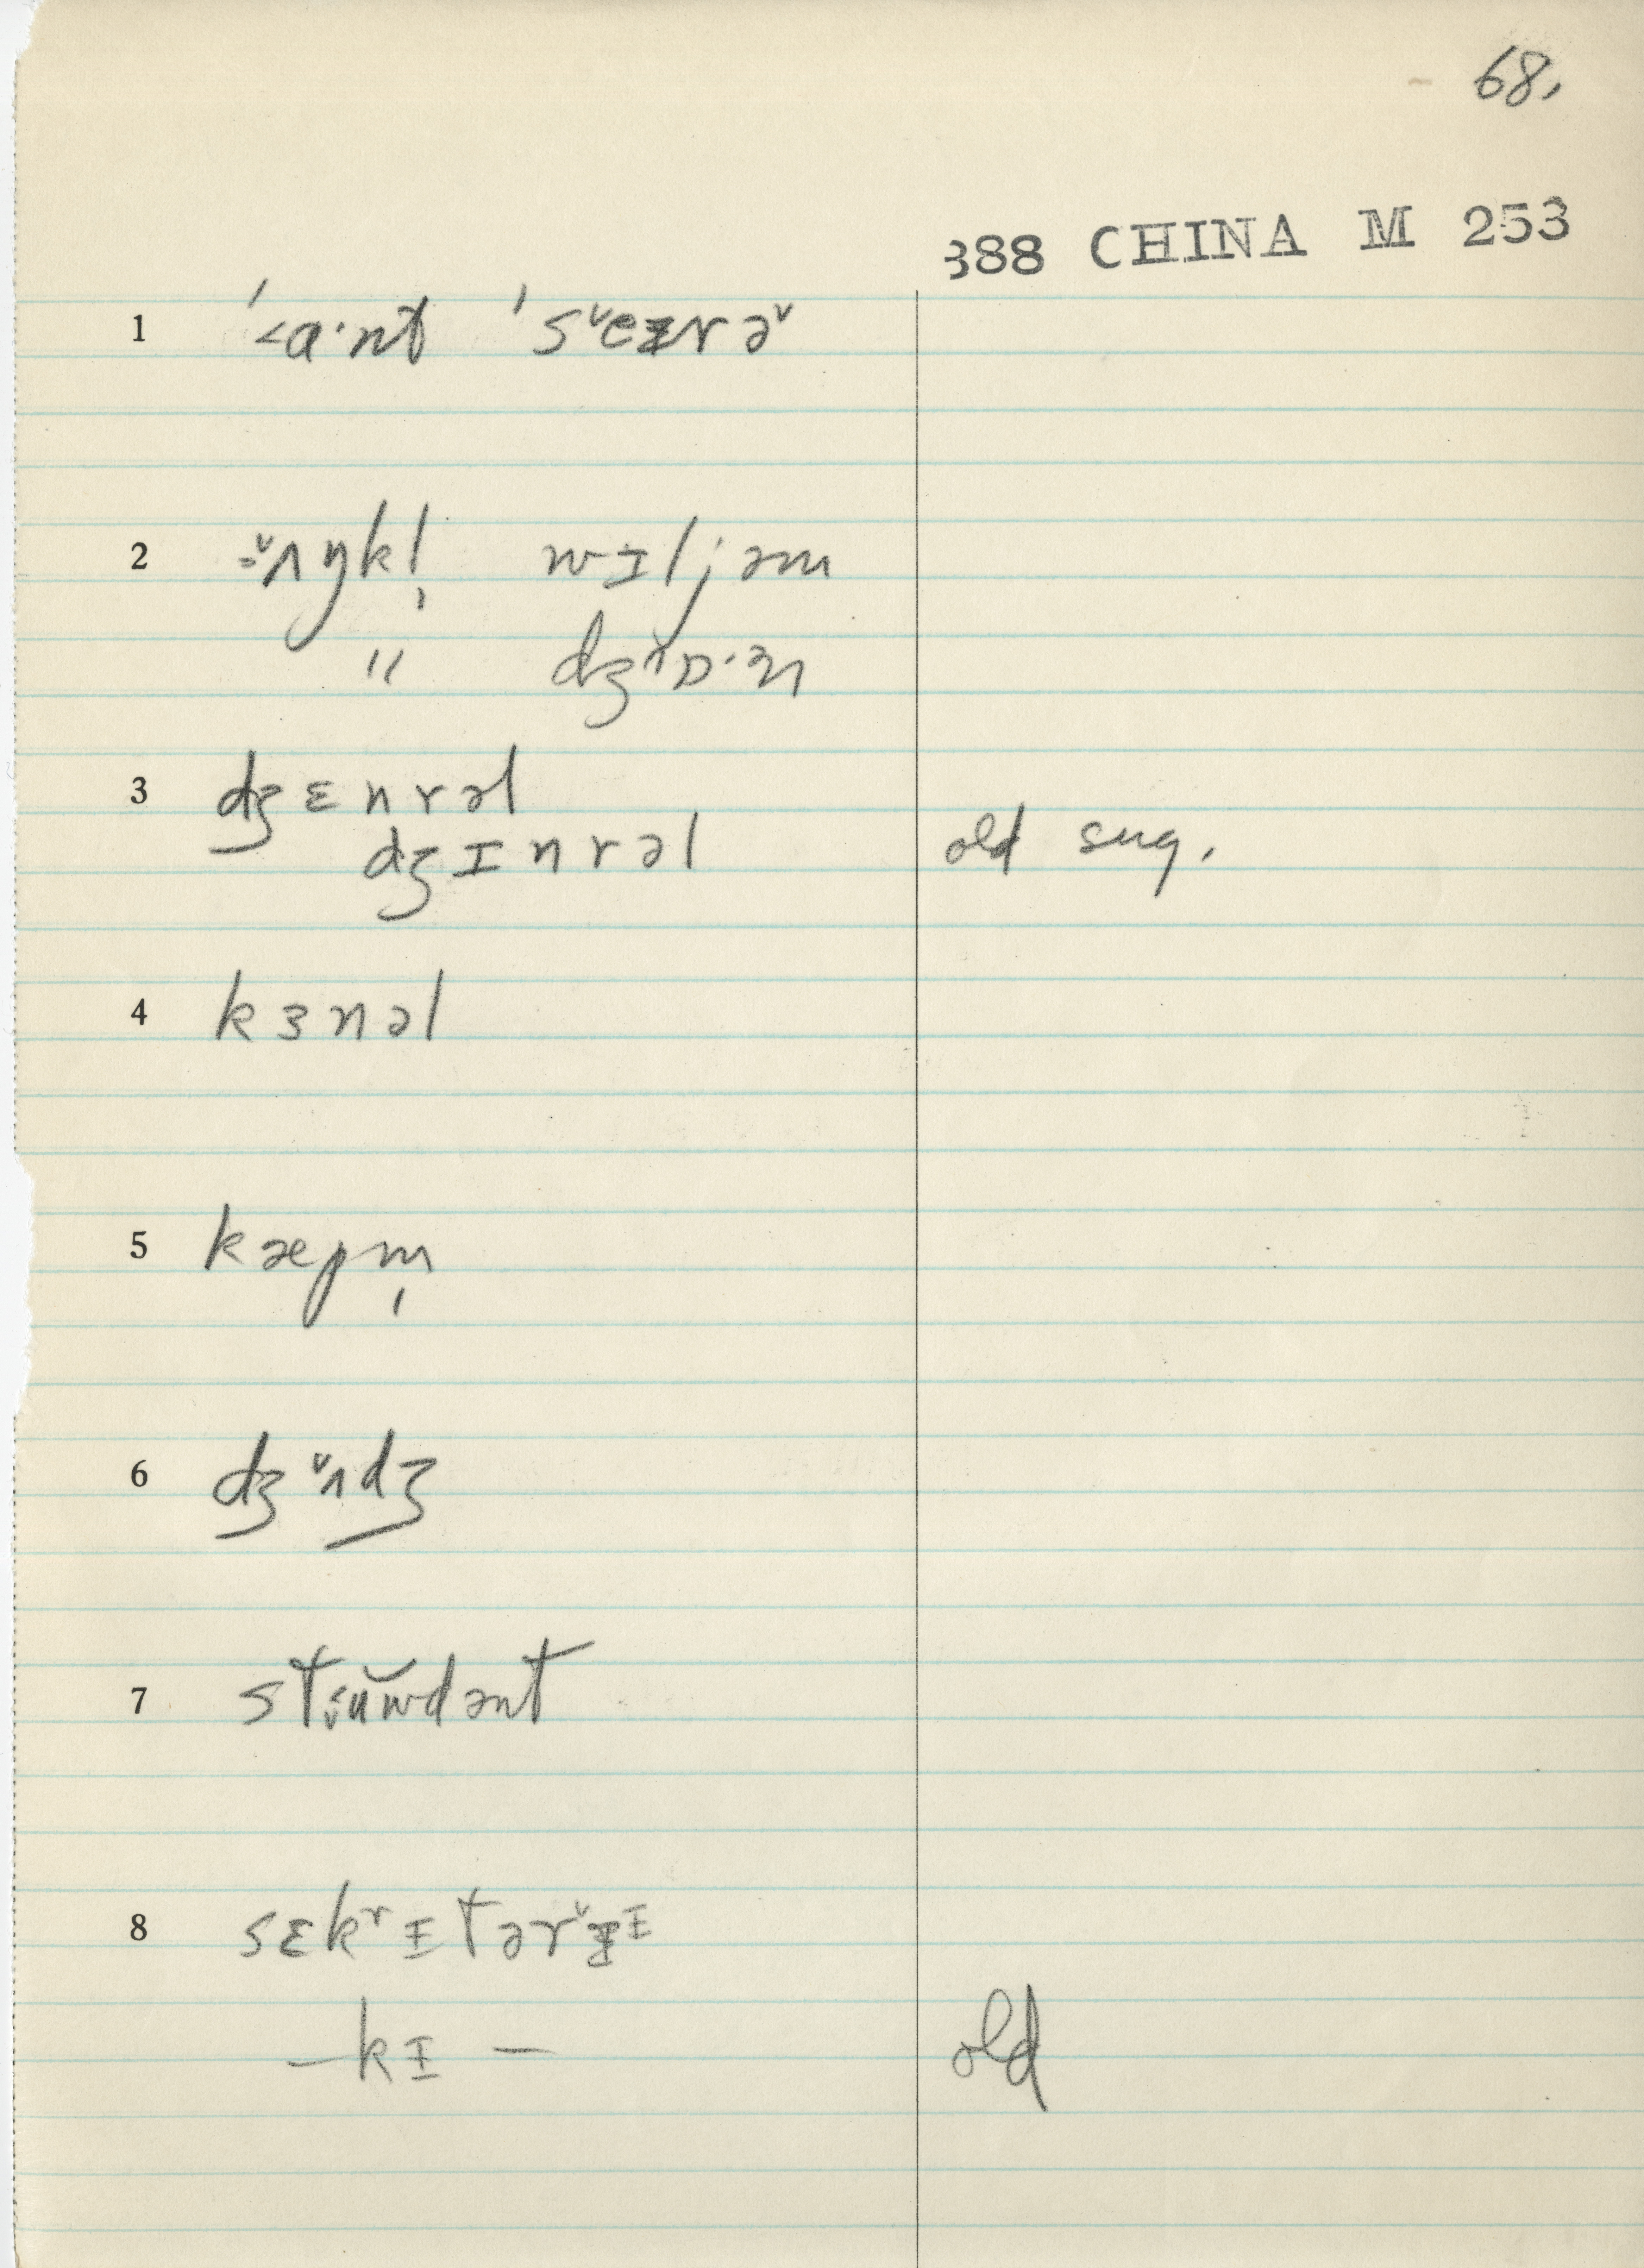 68.
388 CHINA M 253
1 ˈ<a·nt ˈsˇeɪrəˇ
2 ˇʌŋkl̩ wɪljəm
" dʒˇɒ·n
3 dʒɛnrəl
dʒɪnrəl old sug.
4 kɜnəl
5 kæpm̩
6 dʒˇʌdʒ
7 stᵴŭwdənt
8 sɛkʳɪtərˇɪᶦ
—kɪ— old